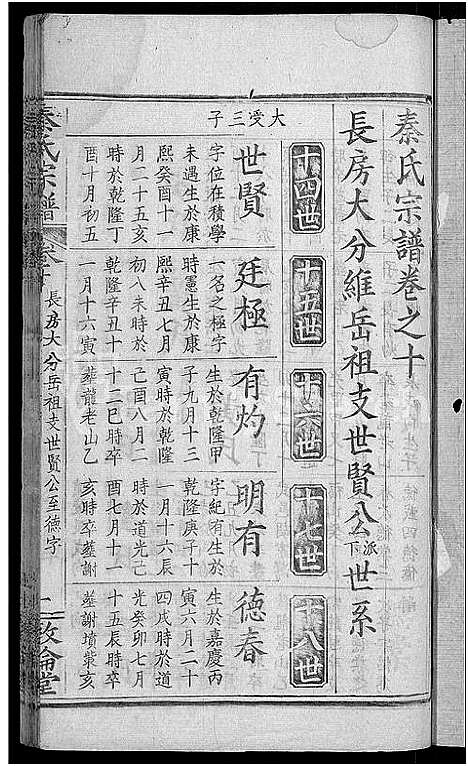 秦氏宗譜卷之十
長房大分維岳祖支世賢公派下世系
十四世
十五世
十六世
十七世
十八世
大受三子
世賢
字位在積學
未遇生於康
熙癸酉十一
月二十五亥
時於乾隆丁
酉十月初五
廷極
一名之極字
時憲生於康
熙辛丑七月
初八未時於
乾隆辛丑十
一月十六寅
有灼
生於乾隆甲
子九月十三
寅時於嘉慶
己酉八月二
十二巳時卒
葬龍老山乙
明有
字紀有生於
乾隆庚子十
一月十六辰
時於道光己
酉七月十一
亥時卒葬謝
德春
生於嘉慶丙
寅六月二十
四戌時於道
光癸卯七月
十五辰時卒
葬謝墳棠亥
秦氏宗譜
卷十
長房大分岳祖支世賢公至德字
二
敦倫堂